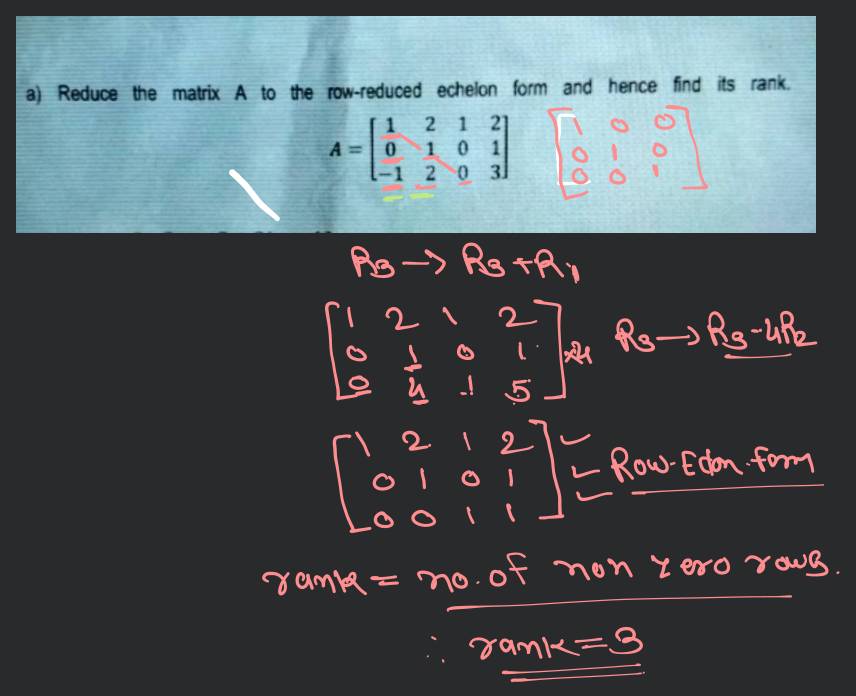 a) Reduce the matrix A to the row-reduced echelon form and hence find its rank.
A = [1 2 1 2
0 1 0 1
-1 2 0 3]
[1 0 0
0 1 0
0 0 1]
R3 → R3 + R1
[1 2 1 2
0 1 0 1
0 4 1 5]
R3 → R3 - 4R2
[1 2 1 2
0 1 0 1
0 0 1 1]
Row-Echn. form
rank = no. of non zero rows.
∴ rank = 3